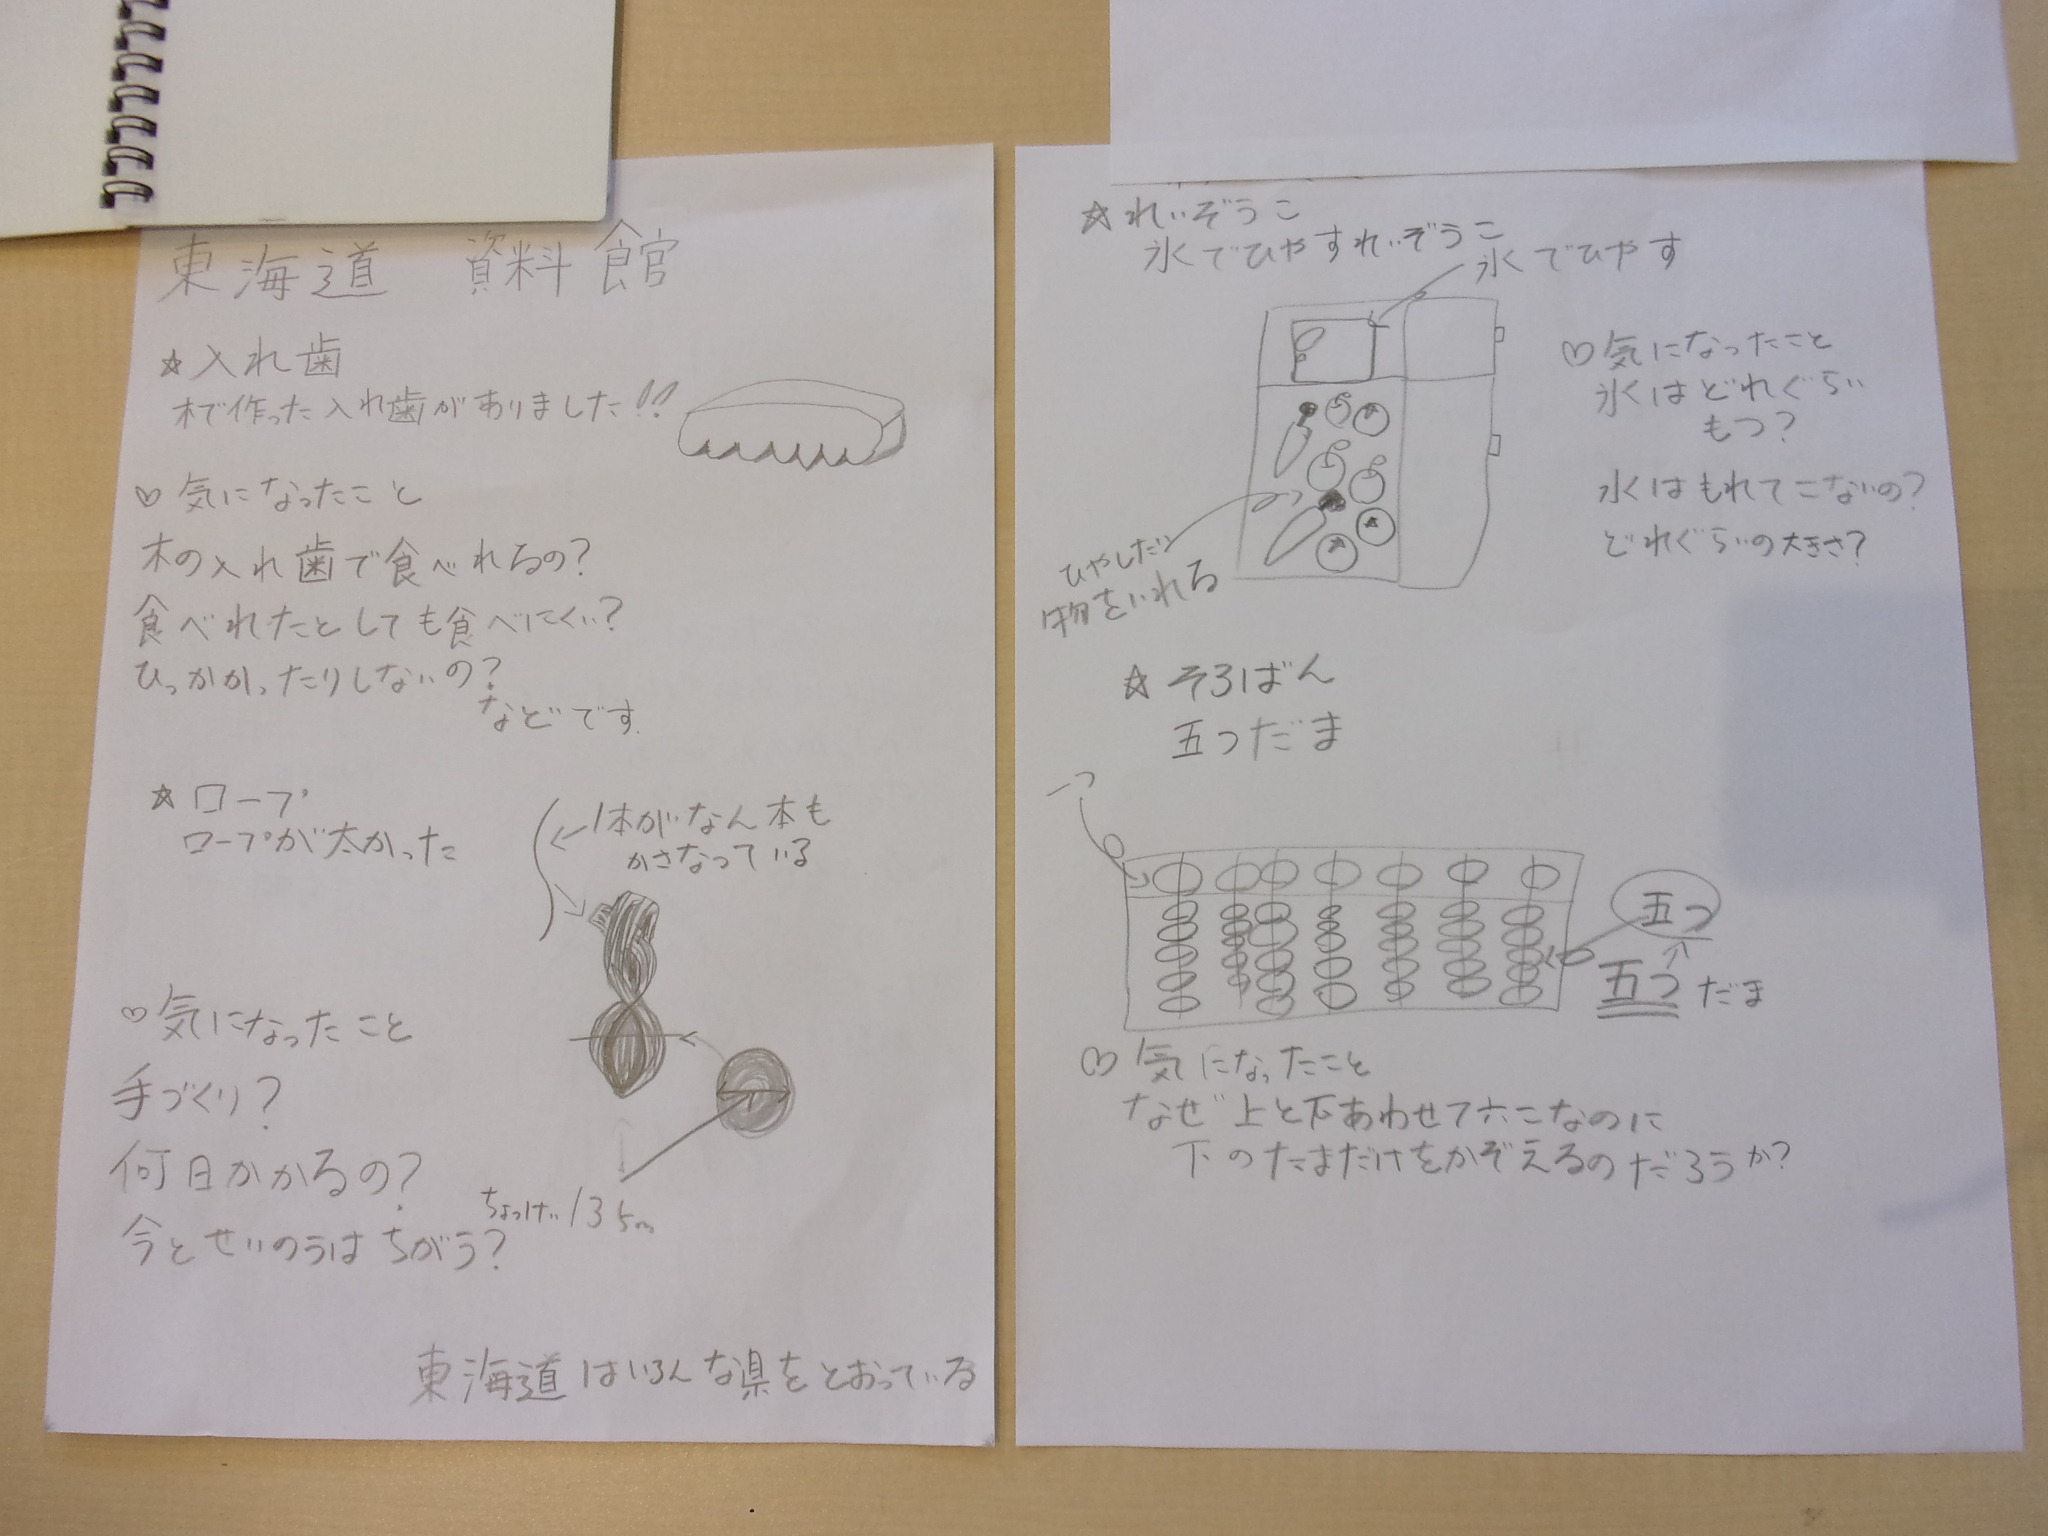 東海道 資料館
☆入れ歯
木で作った入れ歯がありました!!
♡気になったこと
木の入れ歯で食べれるの?
食べれたとしても食べにくい?
ひっかかったりしないの?
などです.
☆ロープ
ロープが太かった
1本がなん本も
かさなっている
♡気になったこと
手づくり?
何日かかるの?
今とせいのうはちがう?
ちょっけい
東海道はいろんな県をとおっている
☆れいぞうこ
氷でひやすれいぞうこ
氷でひやす
♡気になったこと
氷はどれぐらい
もつ?
水はもれてこないの?
どれぐらいの大きさ?
ひやしたい
物をいれる
☆そろばん
五つだま
一つ
五つ
五つだま
♡気になったこと
なぜ上と下あわせて六こなのに
下のたまだけをかぞえるのだろうか?